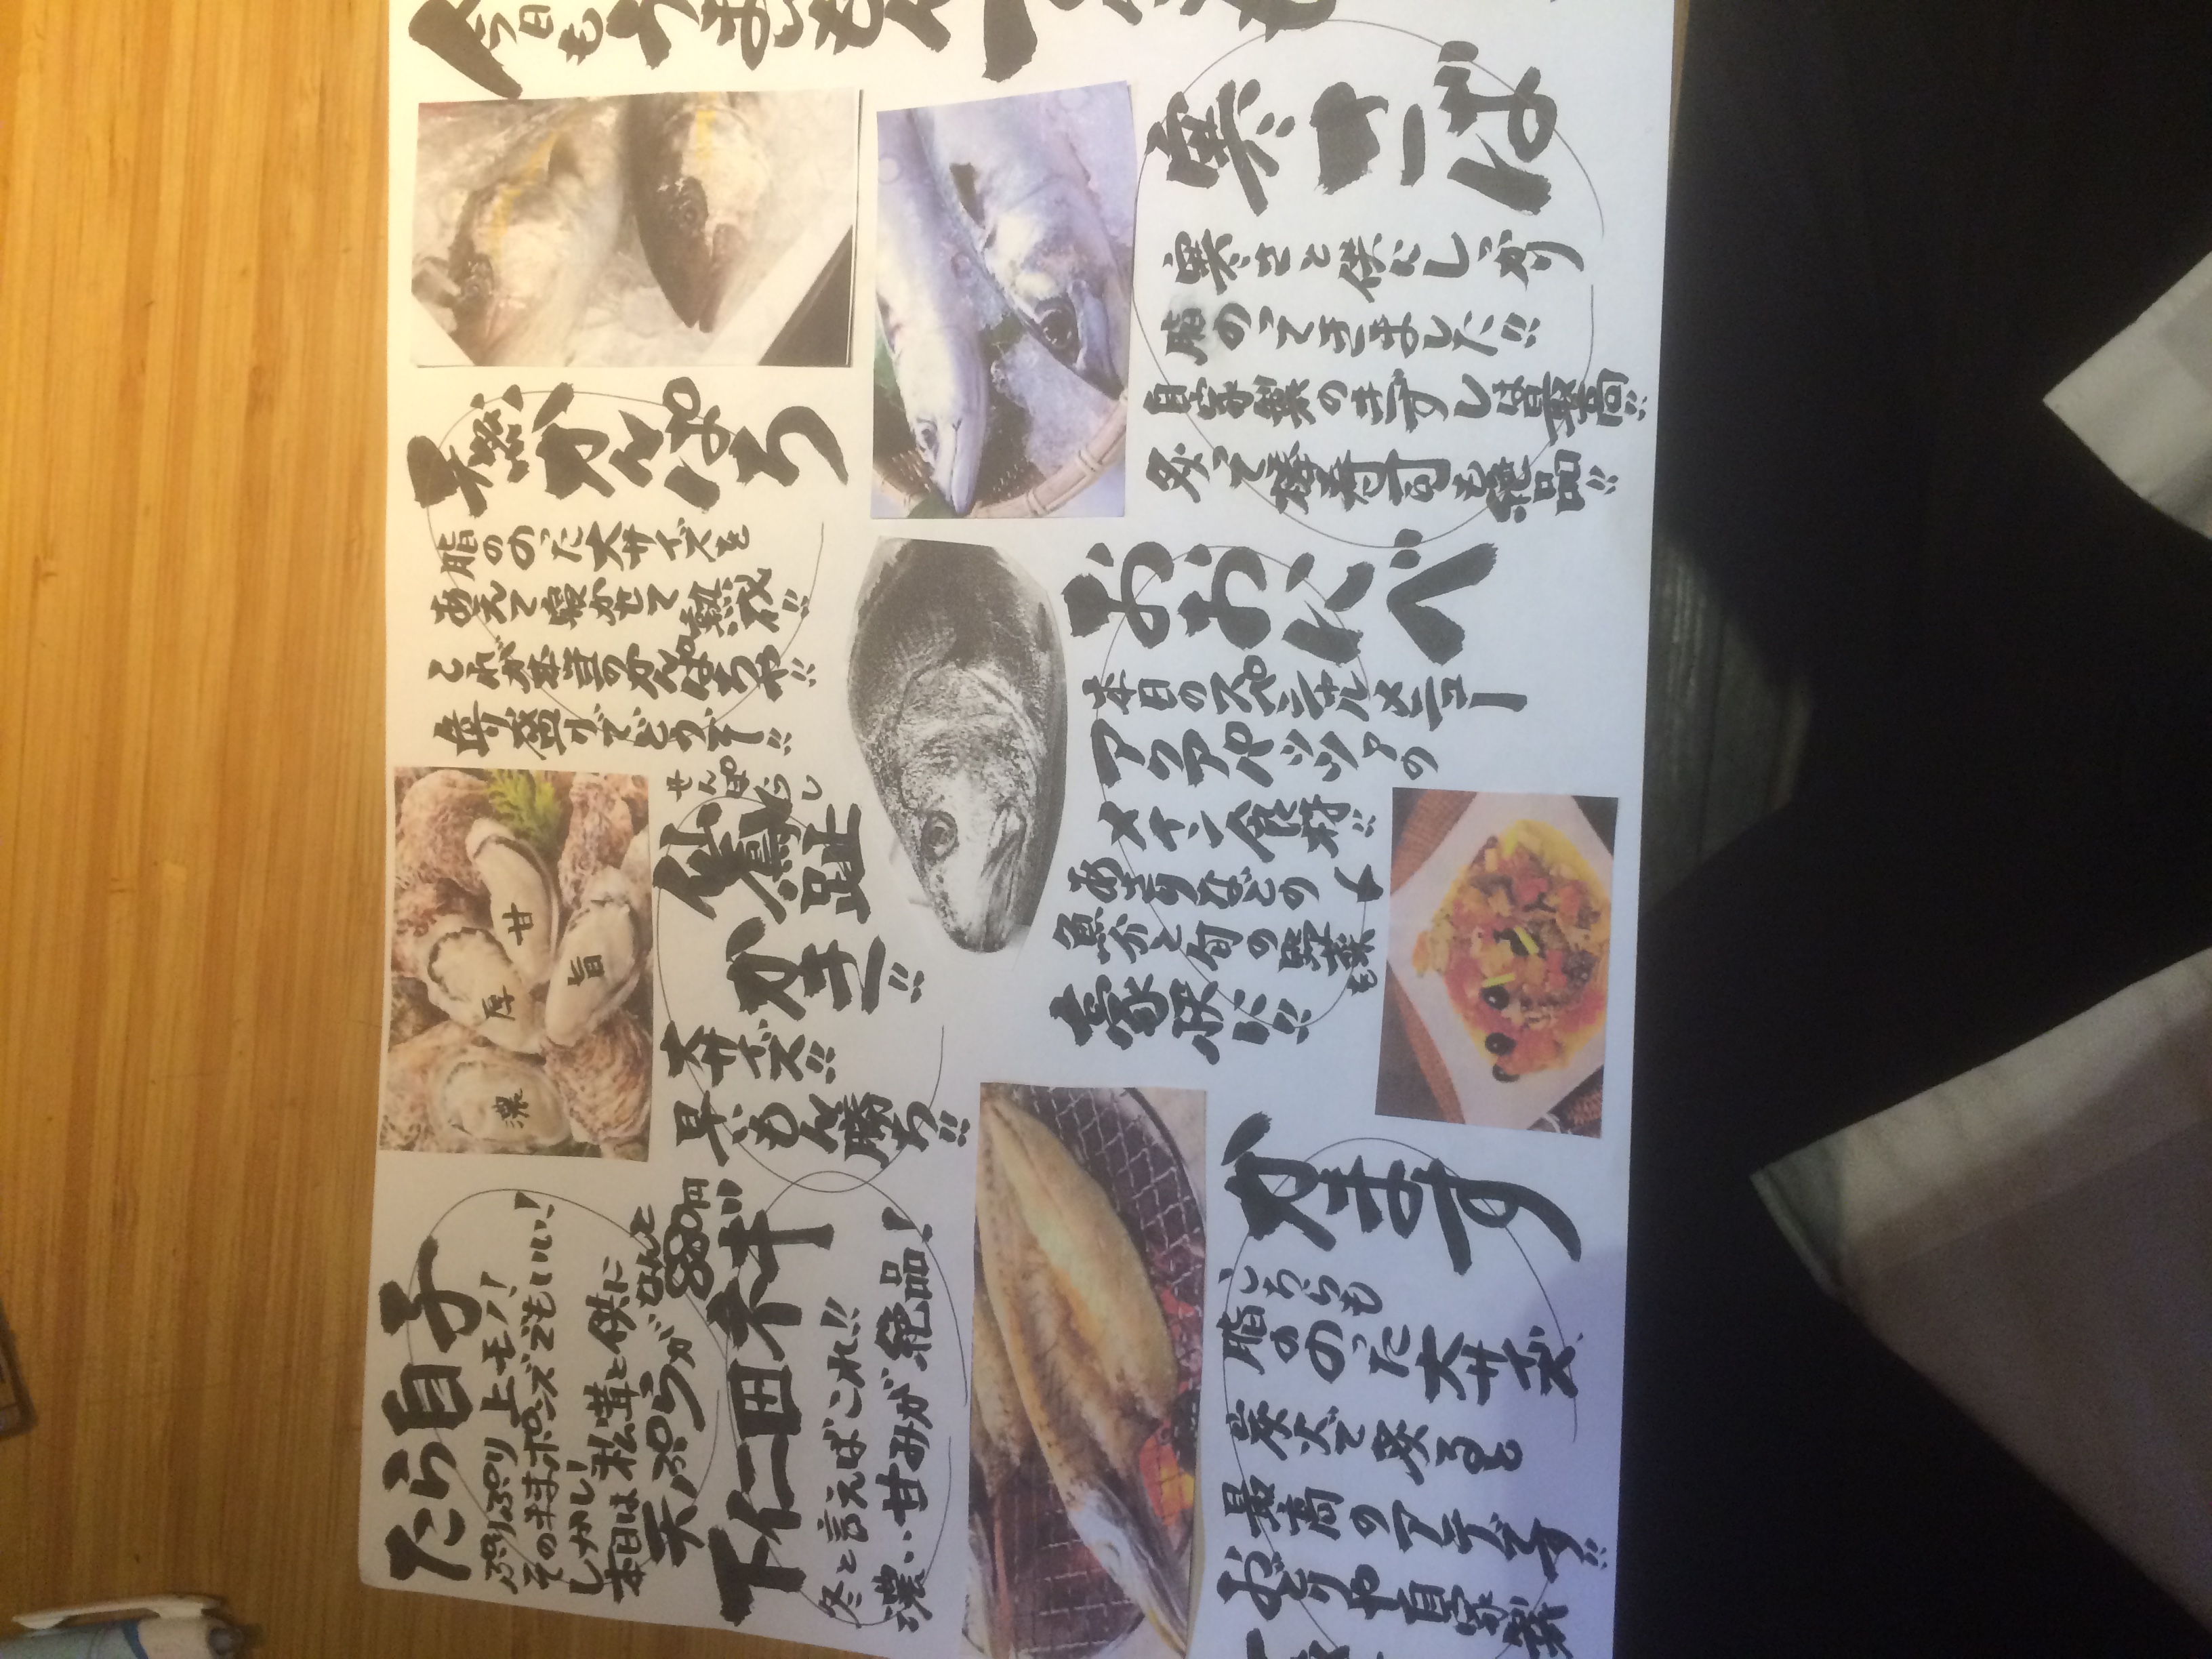 今日も
寒さば
寒さと供にしっかり
脂のってきました!!
自家製のきずしは最高!!
炙って棒寿司も絶品!!
天然かんぱち
脂ののった大サイズを
あえて寝かせて熟成!!
これが本当のかんぱちや!!
造り盛りでどうぞー!!
おおにべ
本日のスペシャルメニュー
アクアパッツァの
メイン食材!!
あさりなどの
魚介と旬の野菜も
豪快に!!
せんぽうし
仙鳳趾
カキー!!
大サイズ!!
早いもん勝ち!!
甘
旨
厚
濃
かます
こちらも
脂ののった大サイズ
炭火で炙ると
最高のアテです!!
自家製
たら白子
ぷりぷり上モノ!
そのままポンズでもいい!
しかし!
本日は松茸と供に
天ぷらがなんと
880円!!
下仁田ネギ
冬と言えばこれ!!
濃い甘みが絶品!